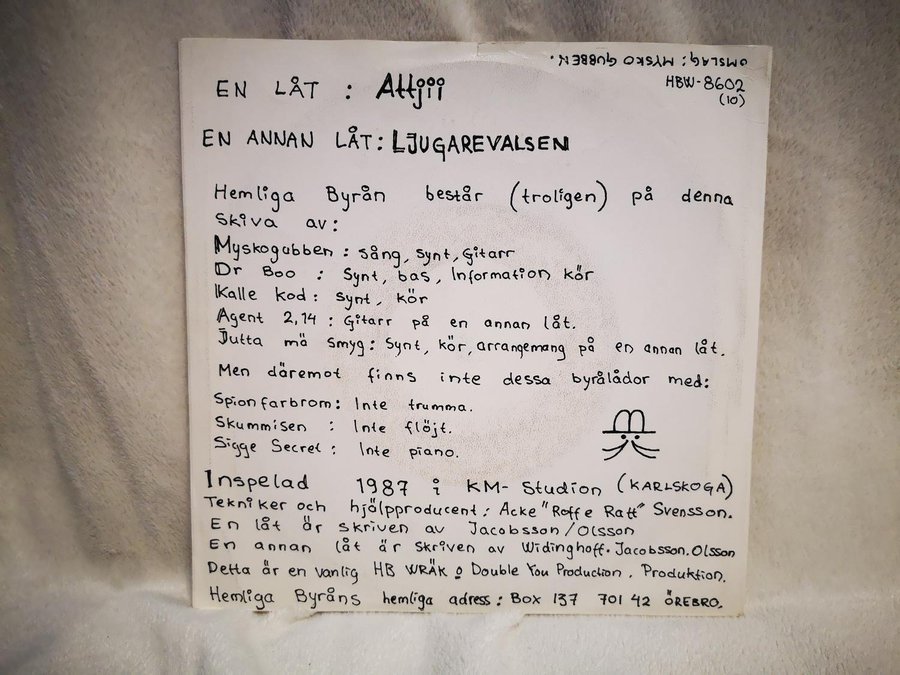 OMSLAG: MYSKO GUBBEN.
EN LÅT : Attjii
HBW-8602
(10)
EN ANNAN LÅT: LJUGAREVALSEN
Hemliga Byrån består (troligen) på denna
skiva av:
Myskogubben : sång, synt, gitarr
Dr Boo : Synt, bas, Information kör
Kalle Kod : synt, kör
Agent 2,14 : Gitarr på en annan låt.
Jutta mä Smyg : Synt, kör, arrangemang på en annan låt.
Men däremot finns inte dessa byrålådor med:
Spionfarbrorn: Inte trumma.
Skummisen : Inte flöjt.
Sigge Secret : Inte piano.
Inspelad 1987 i KM-Studion (KARLSKOGA)
Tekniker och hjälpproducent: Acke "Roffe Ratt" Svensson.
En låt är skriven av Jacobsson/Olsson
En annan låt är skriven av Widinghoff. Jacobsson. Olsson
Detta är en vanlig HB WRÄK o Double You Production. Produktion.
Hemliga Byråns hemliga adress: BOX 137 701 42 ÖREBRO.